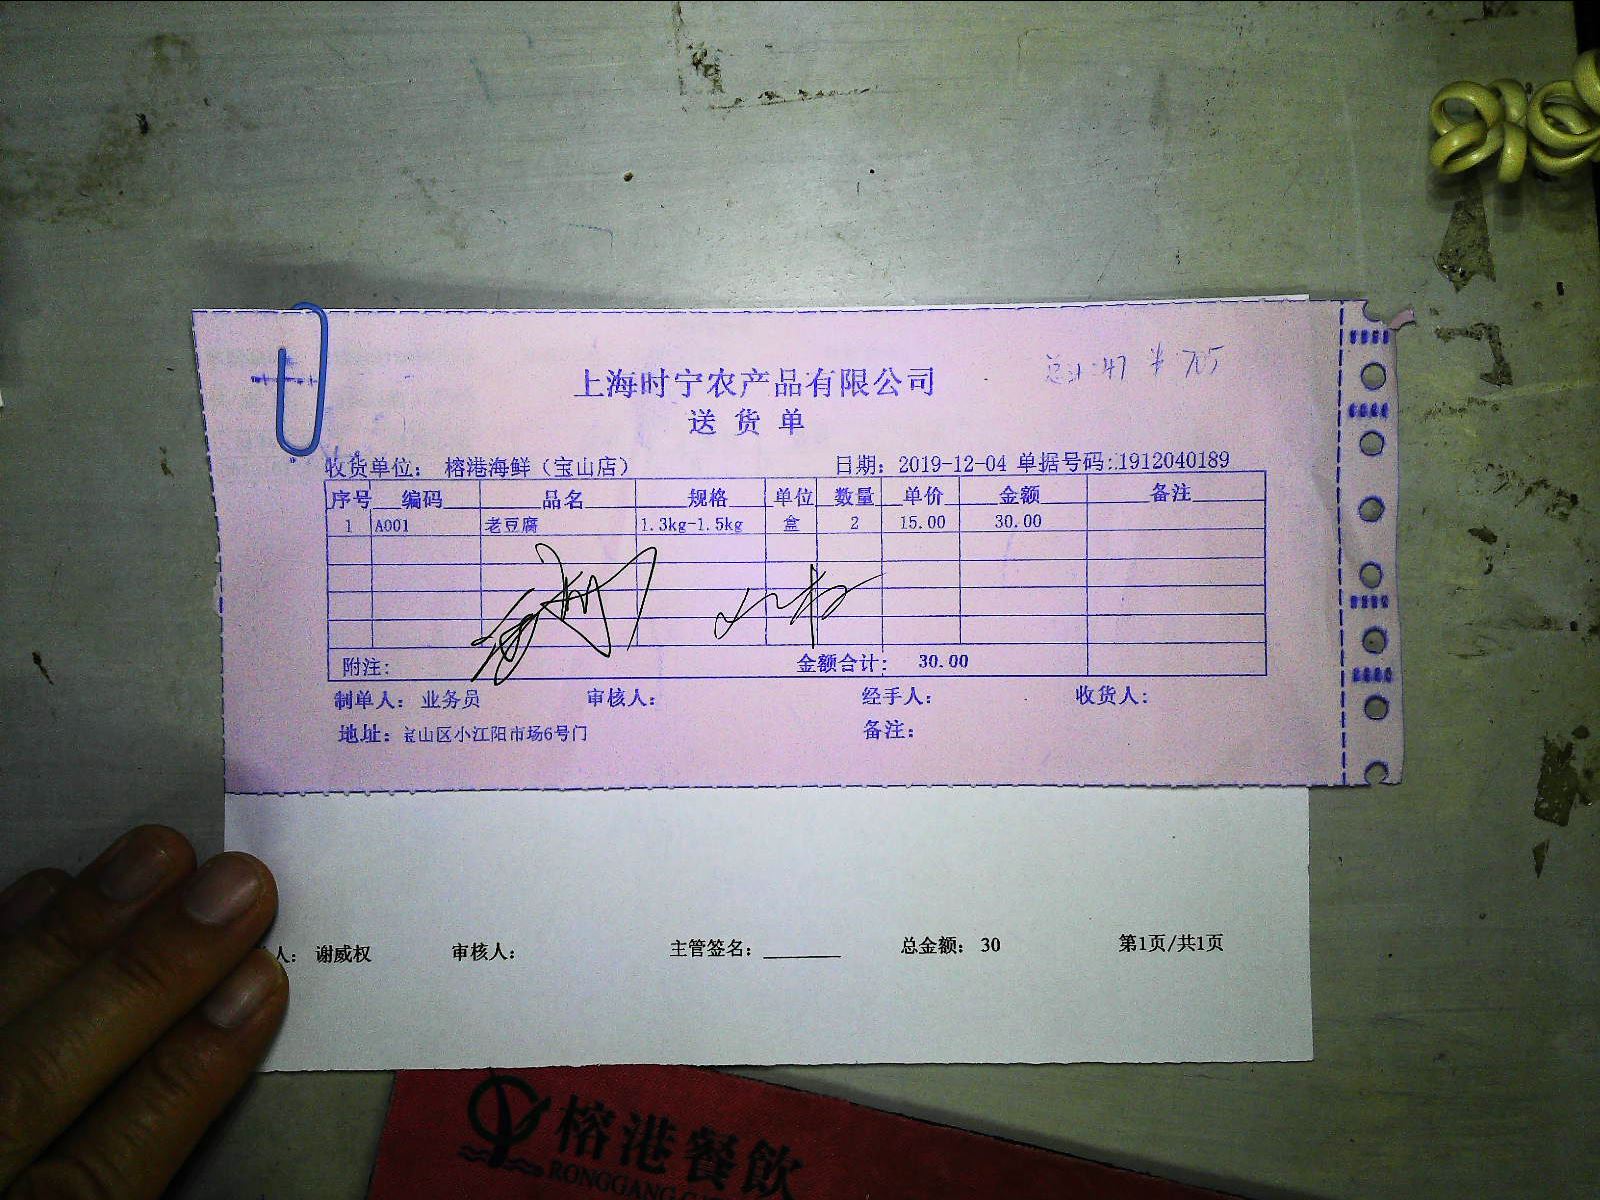 总计:47 ¥ 705
上海时宁农产品有限公司
送 货 单
收货单位： 榕港海鲜（宝山店） 日期： 2019-12-04 单据号码：1912040189
序号 编码 品名 规格 单位 数量 单价 金额 备注
1 A001 老豆腐 1.3kg-1.5kg 盒 2 15.00 30.00
附注: 金额合计： 30.00
制单人： 业务员 审核人： 经手人： 收货人：
地址：宝山区小江阳市场6号门 备注：
人： 谢威权 审核人： 主管签名：________ 总金额： 30 第1页/共1页
榕港餐飲
RONGGANG